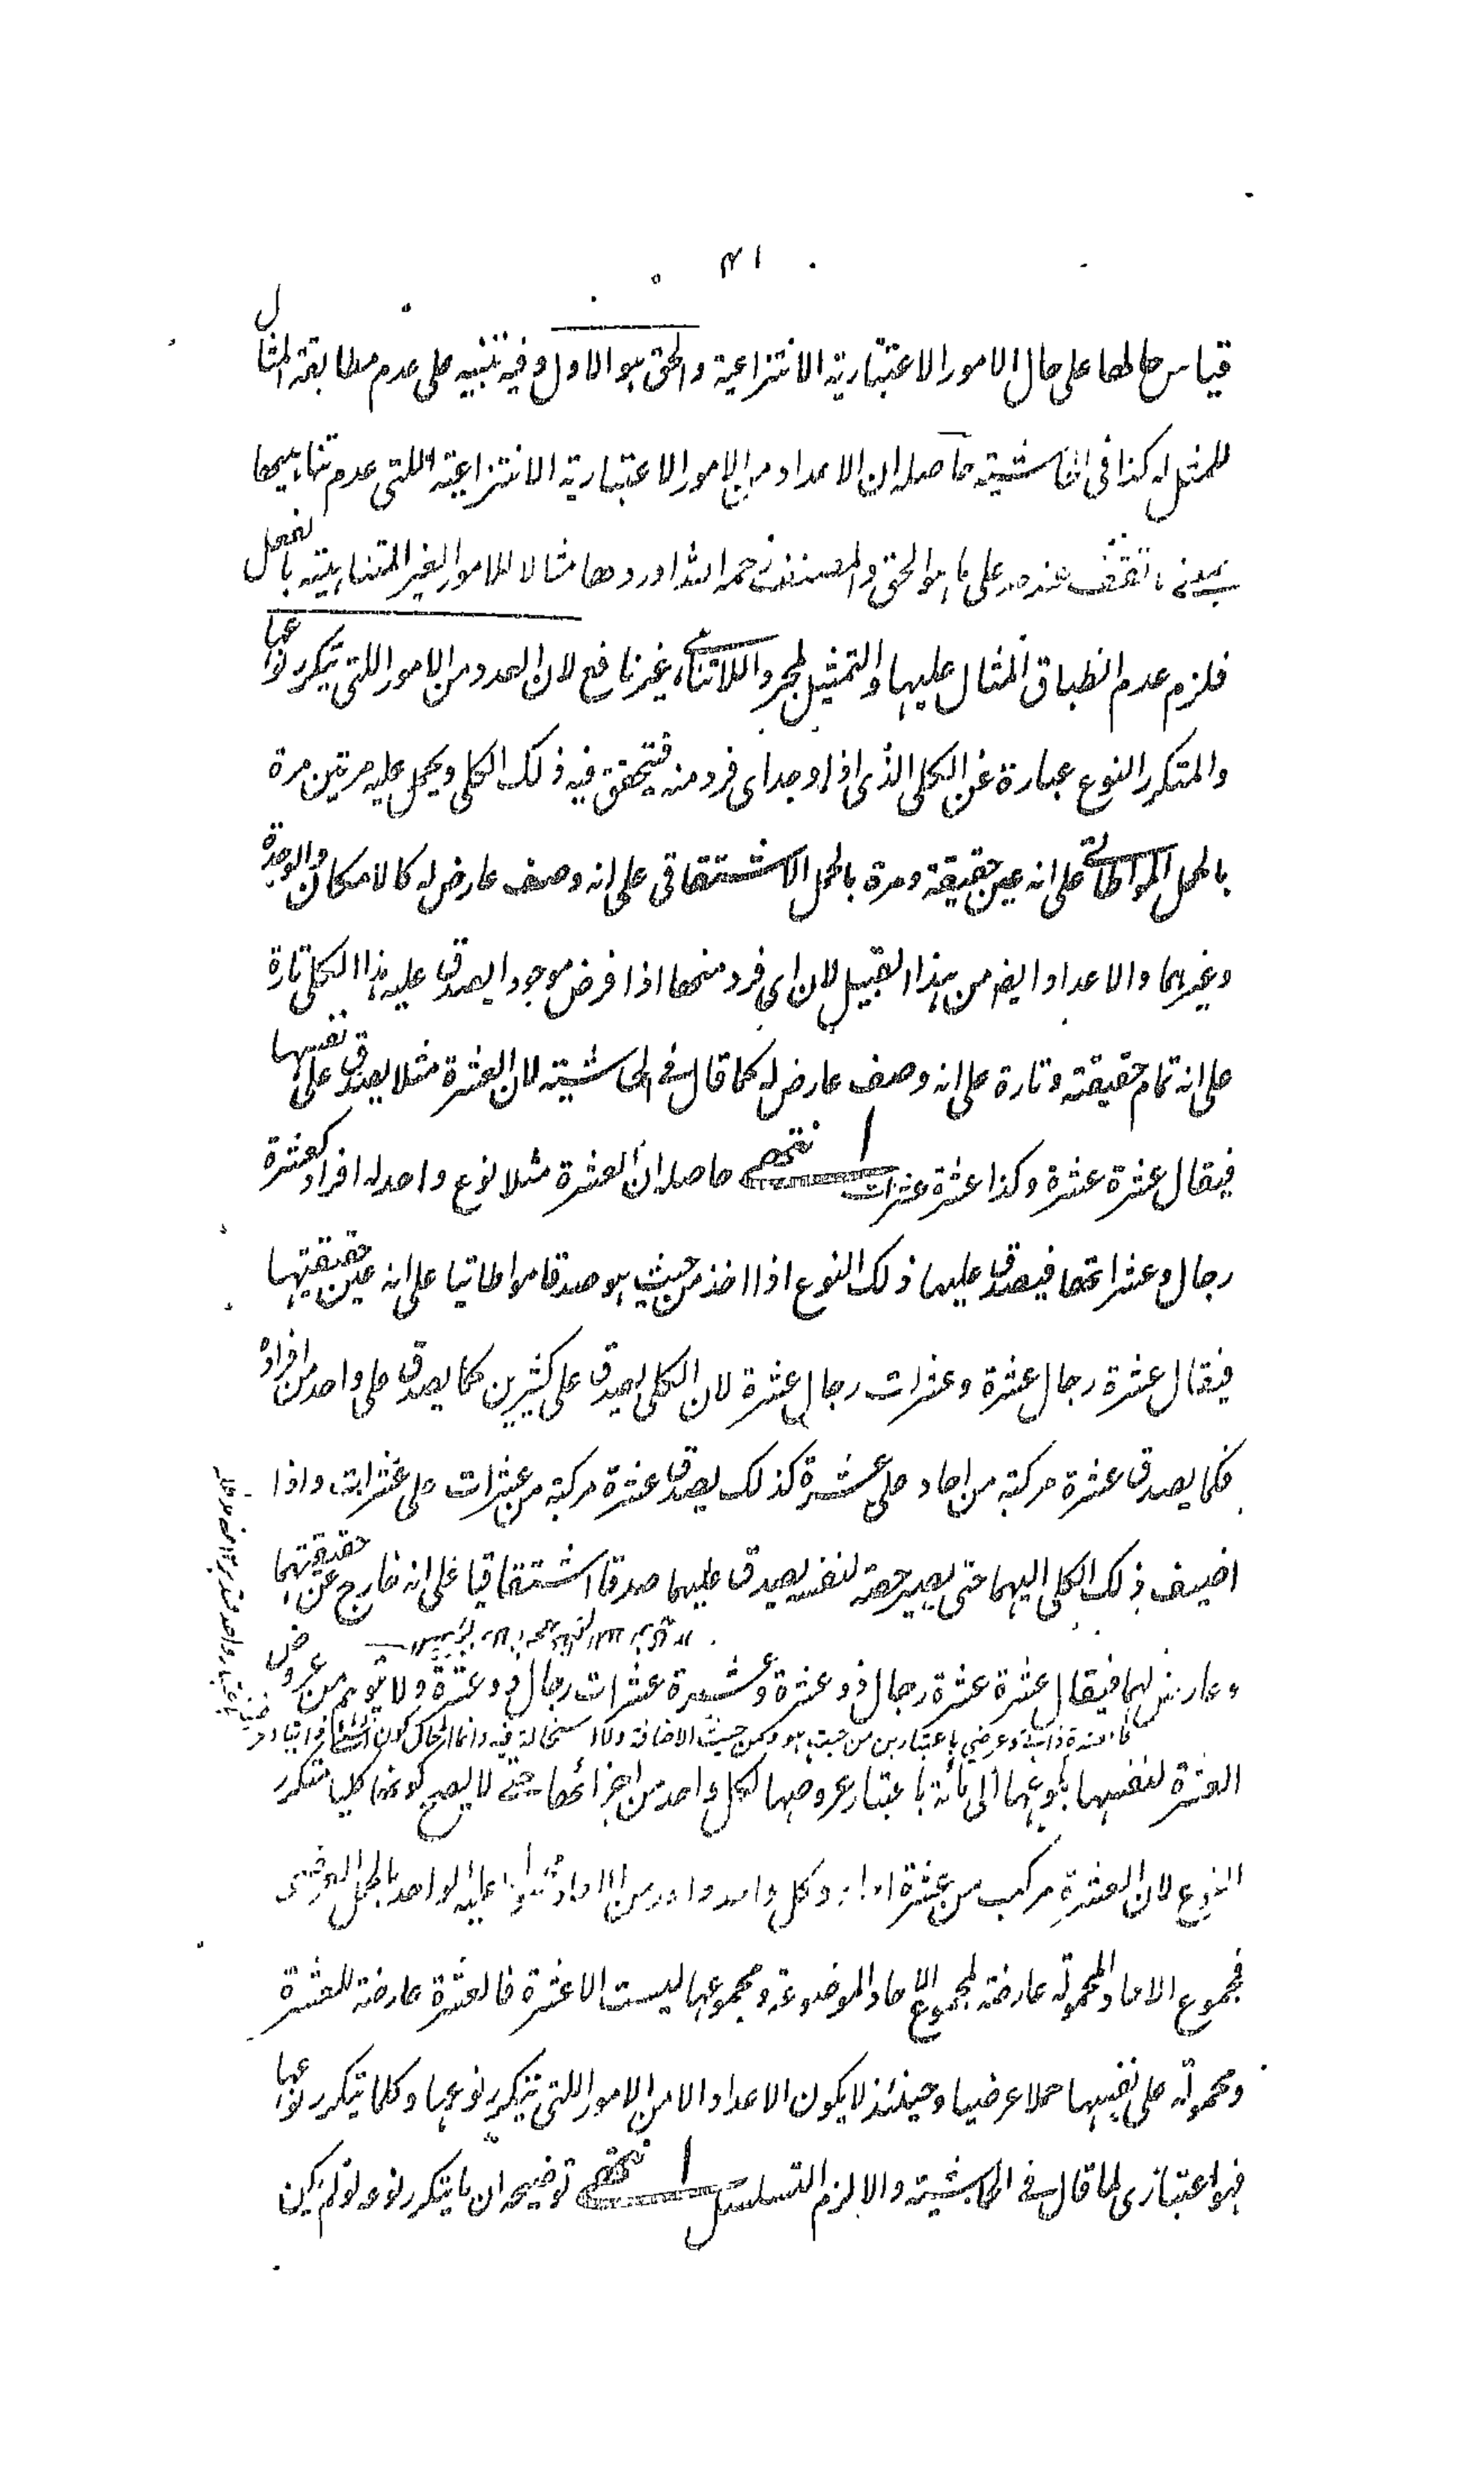 ٤١
قياس حالها على حال الامور الاعتبارية الانتزاعية والحق هو الاول وفيه تنبيه على عدم مطابقة المثال
للممثل له كذا فى الحاشية حاصله ان الاعداد من الامور الاعتبارية الانتزاعية اللتى عدم تناهيها
بمعنى لا تقف عند حد على ما هو الحق والمصنف رحمه الله اوردها مثالا للامور الغير المتناهية بالفعل
فلزم عدم انطباق المثال عليها والتمثيل لمجرد اللاتناهى غير نافع لان العدد من الامور اللتى يتكرر نوعها
والمتكرر النوع عبارة عن الكلى الذى اذا وجد اى فرد منه فيتحقق فيه ذلك الكلى ويحمل عليه مرتين مرة
بالحمل المواطاتى على انه عين حقيقة ومرة بالحمل الاشتقاقى على انه وصف عارض له كالامكان والوحدة
وغيرهما والاعداد ايضا من هذا القبيل لان اى فرد منها اذا فرض موجودا يصدق عليه هذا الكلى تارة
على انه تمام حقيقته وتارة على انه وصف عارض له كما قال فى الحاشية لان العشرة مثلا يصدق على نفسها
فيقال عشرة عشرة وكذا عشرة عشرات انتهى حاصله ان العشرة مثلا نوع واحد له افراد كعشرة
رجال وعشراتها فيصدق عليها ذلك النوع اذا اخذ من حيث هو صدقا مواطاتيا على انه عين حقيقتها
فيقال عشرة رجال عشرة وعشرات رجال عشرة لان الكلى يصدق على كثيرين كما يصدق على واحد من افراده
فكما يصدق عشرة مركبة من احاد على عشرة كذلك يصدق عشرة مركبة من عشرات على عشرات واذا
اضيف ذلك الكلى اليهما حتى يصير حصة لنفسه يصدق عليهما صدقا اشتقاقيا على انه خارج عن حقيقتهما
وعارض لهما فيقال عشرة عشرة رجال ذو عشرة وعشرة عشرات رجال ذو عشرة ولا يتوهم من عروض
العشرة لنفسها بلوغها الى مائة باعتبار عروضها لكل واحد من اجزائها حتى لا يصح كونها كليا متكرر
النوع لان العشرة مركب من عشرة احاد وكل واحد واحد من الاحاد عليه الواحد بالحمل العرضى
فمجموع الاحاد المحمولة عارضة لمجموع الاحاد الموضوعة ومجموعها ليست الا عشرة فالعشرة عارضة للعشرة
ومحمولة على نفسها حملا عرضيا وحينئذ لا يكون الاعداد الا من الامور اللتى يتكرر نوعها وكلما يتكرر نوعها
فهو اعتبارى لما قال فى الحاشية والا لزم التسلسل انتهى توضيحه ان ما يتكرر نوعه لو لم يكن